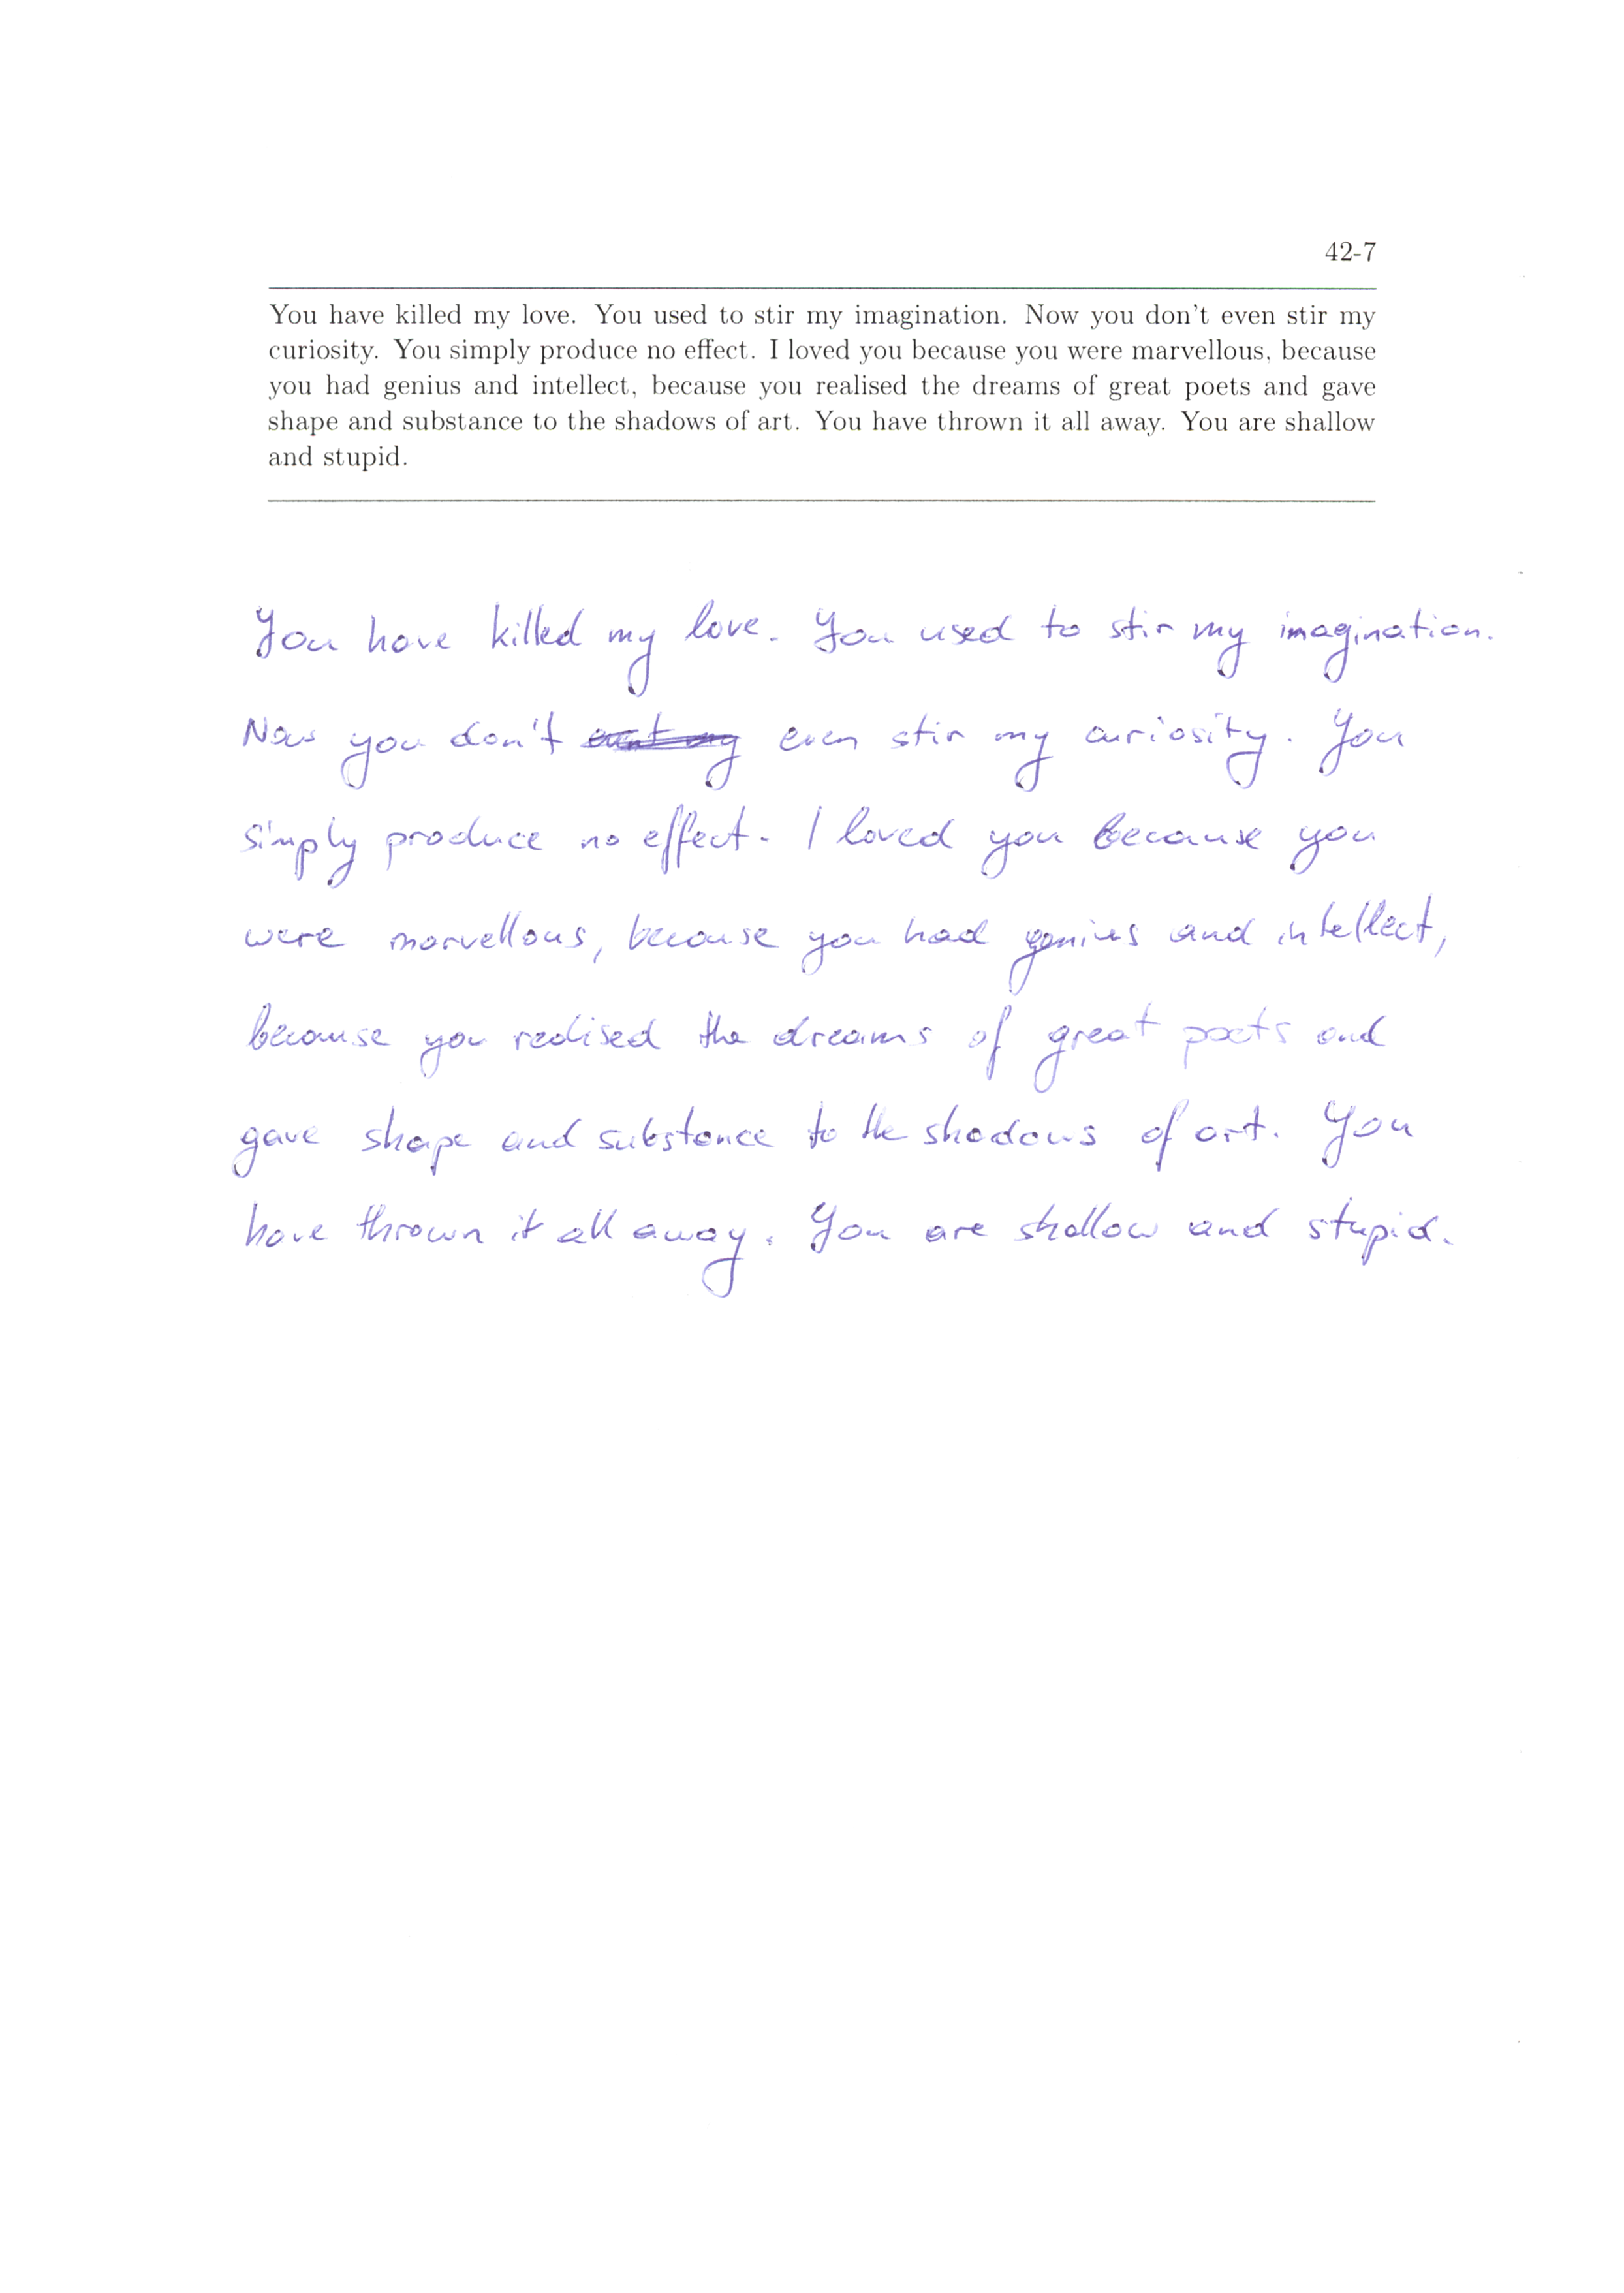 42-7
You have killed my love. You used to stir my imagination. Now you don't even stir my
curiosity. You simply produce no effect. I loved you because you were marvellous, because
you had genius and intellect, because you realised the dreams of great poets and gave
shape and substance to the shadows of art. You have thrown it all away. You are shallow
and stupid.
You have killed my love. You used to stir my imagination.
Now you don't even stir my curiosity. You
simply produce no effect. I loved you because you
were marvellous, because you had genius and intellect,
because you realised the dreams of great poets and
gave shape and substance to the shadows of art. You
have thrown it all away. You are shallow and stupid.